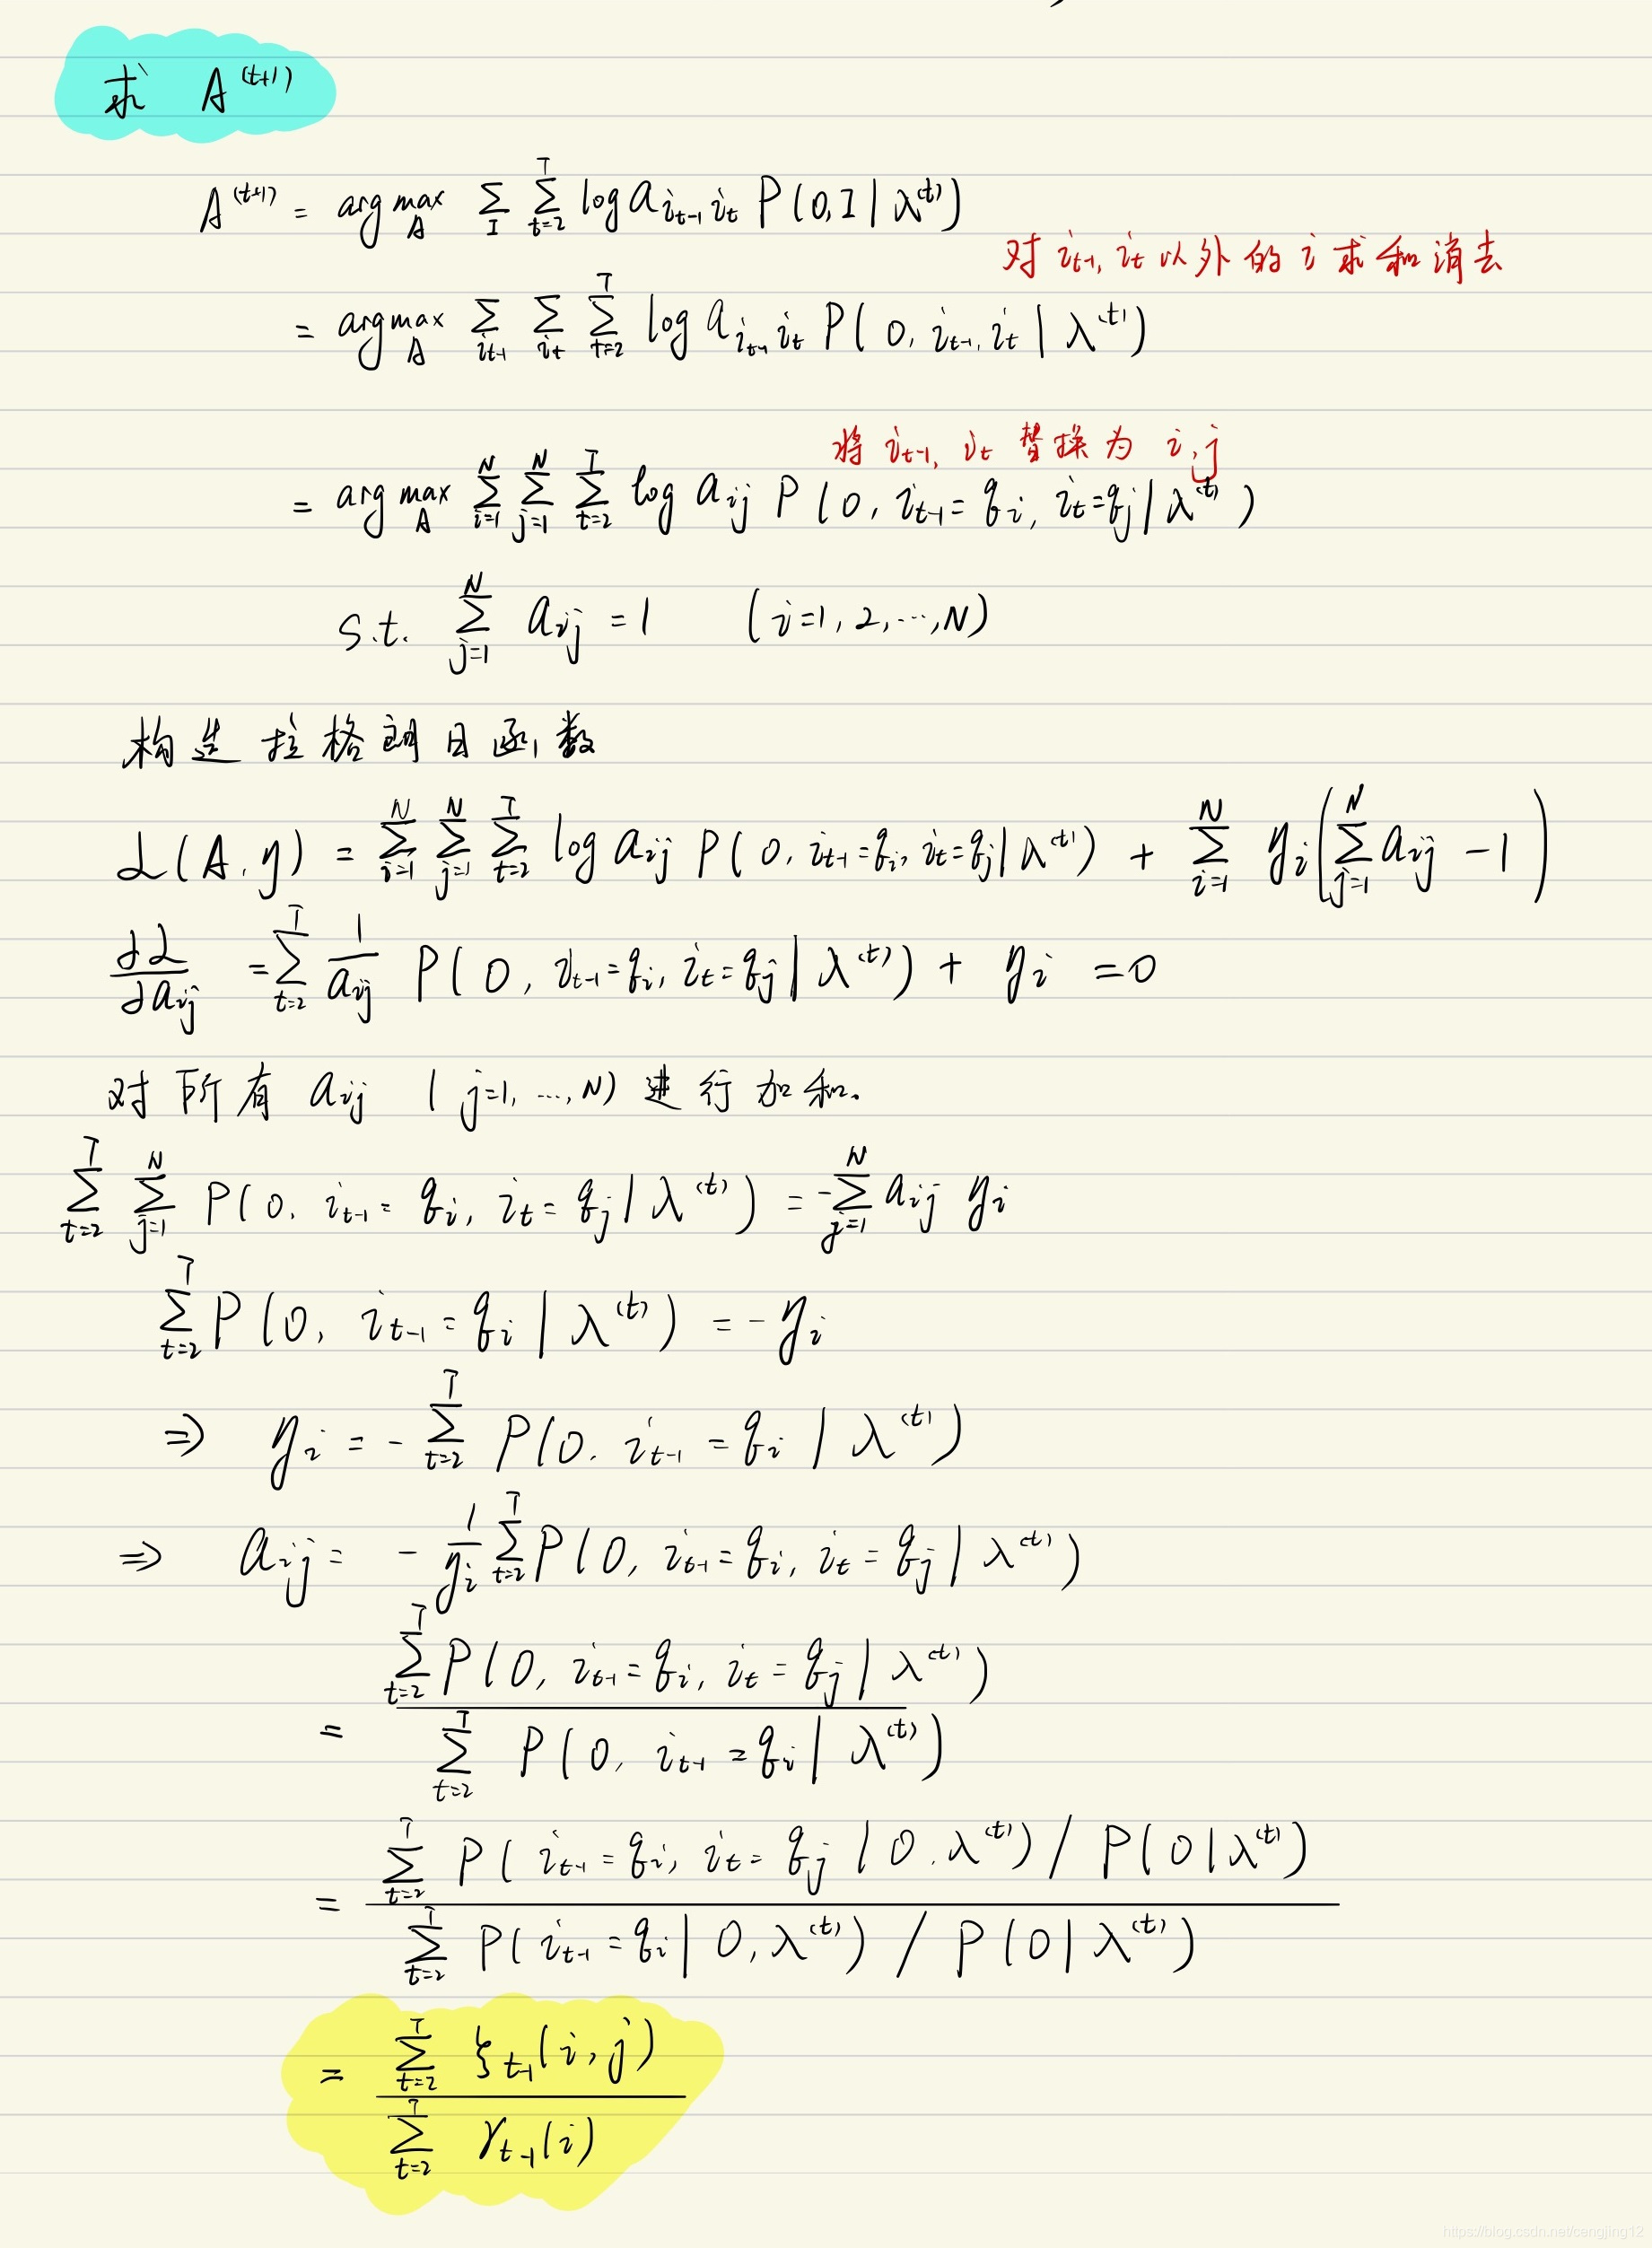 求 A^(t+1)
A^(t+1) = arg max_A Σ_I Σ_{t=2}^T log a_{i_{t-1} i_t} P(O, I | λ^(t))
对 i_{t-1}, i_t 以外的 i 求和消去
= arg max_A Σ_{i_{t-1}} Σ_{i_t} Σ_{t=2}^T log a_{i_{t-1} i_t} P(O, i_{t-1}, i_t | λ^(t))
将 i_{t-1}, i_t 替换为 i, j
= arg max_A Σ_{i=1}^N Σ_{j=1}^N Σ_{t=2}^T log a_{ij} P(O, i_{t-1}=q_i, i_t=q_j | λ^(t))
s.t. Σ_{j=1}^N a_{ij} = 1 (i=1,2,…,N)
构造拉格朗日函数
L(A, η) = Σ_{i=1}^N Σ_{j=1}^N Σ_{t=2}^T log a_{ij} P(O, i_{t-1}=q_i, i_t=q_j | λ^(t)) + Σ_{i=1}^N η_i (Σ_{j=1}^N a_{ij} - 1)
∂L/∂a_{ij} = Σ_{t=2}^T 1/a_{ij} P(O, i_{t-1}=q_i, i_t=q_j | λ^(t)) + η_i = 0
对所有 a_{ij} (j=1,…,N) 进行加和.
Σ_{t=2}^T Σ_{j=1}^N P(O, i_{t-1}=q_i, i_t=q_j | λ^(t)) = -Σ_{j=1}^N a_{ij} η_i
Σ_{t=2}^T P(O, i_{t-1}=q_i | λ^(t)) = -η_i
⇒ η_i = -Σ_{t=2}^T P(O, i_{t-1}=q_i | λ^(t))
⇒ a_{ij} = -1/η_i Σ_{t=2}^T P(O, i_{t-1}=q_i, i_t=q_j | λ^(t))
= Σ_{t=2}^T P(O, i_{t-1}=q_i, i_t=q_j | λ^(t)) / Σ_{t=2}^T P(O, i_{t-1}=q_i | λ^(t))
= Σ_{t=2}^T P(i_{t-1}=q_i, i_t=q_j | O, λ^(t)) / P(O | λ^(t))
Σ_{t=2}^T P(i_{t-1}=q_i | O, λ^(t)) / P(O | λ^(t))
= Σ_{t=2}^T ξ_{t-1}(i, j) / Σ_{t=2}^T γ_{t-1}(i)
https://blog.csdn.net/cengjing12